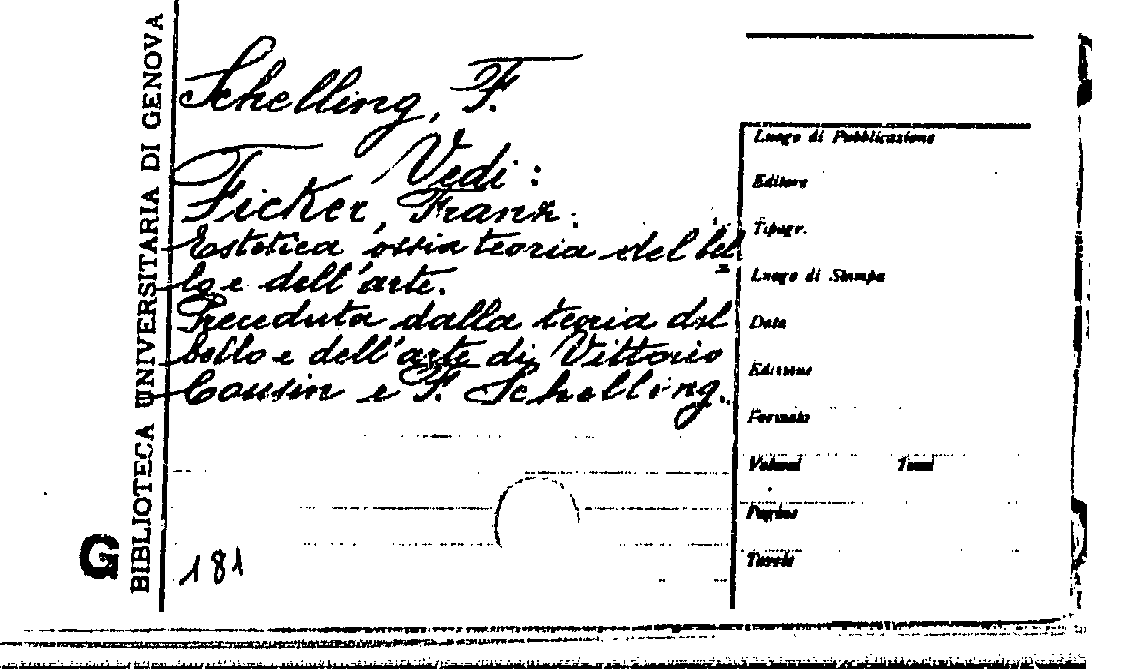 BIBLIOTECA UNIVERSITARIA DI GENOVA
G
Schelling, F.
Vedi :
Ficker, Franz.
Estetica ossia teoria del bel
lo e dell'arte.
Preceduta dalla teoria del
bello e dell'arte di Vittorio
Cousin e F. Schelling.
181
Luogo di Pubblicazione
Editore
Tipogr.
Luogo di Stampa
Data
Edizione
Formato
Volumi Tomi
Pagine
Tavole